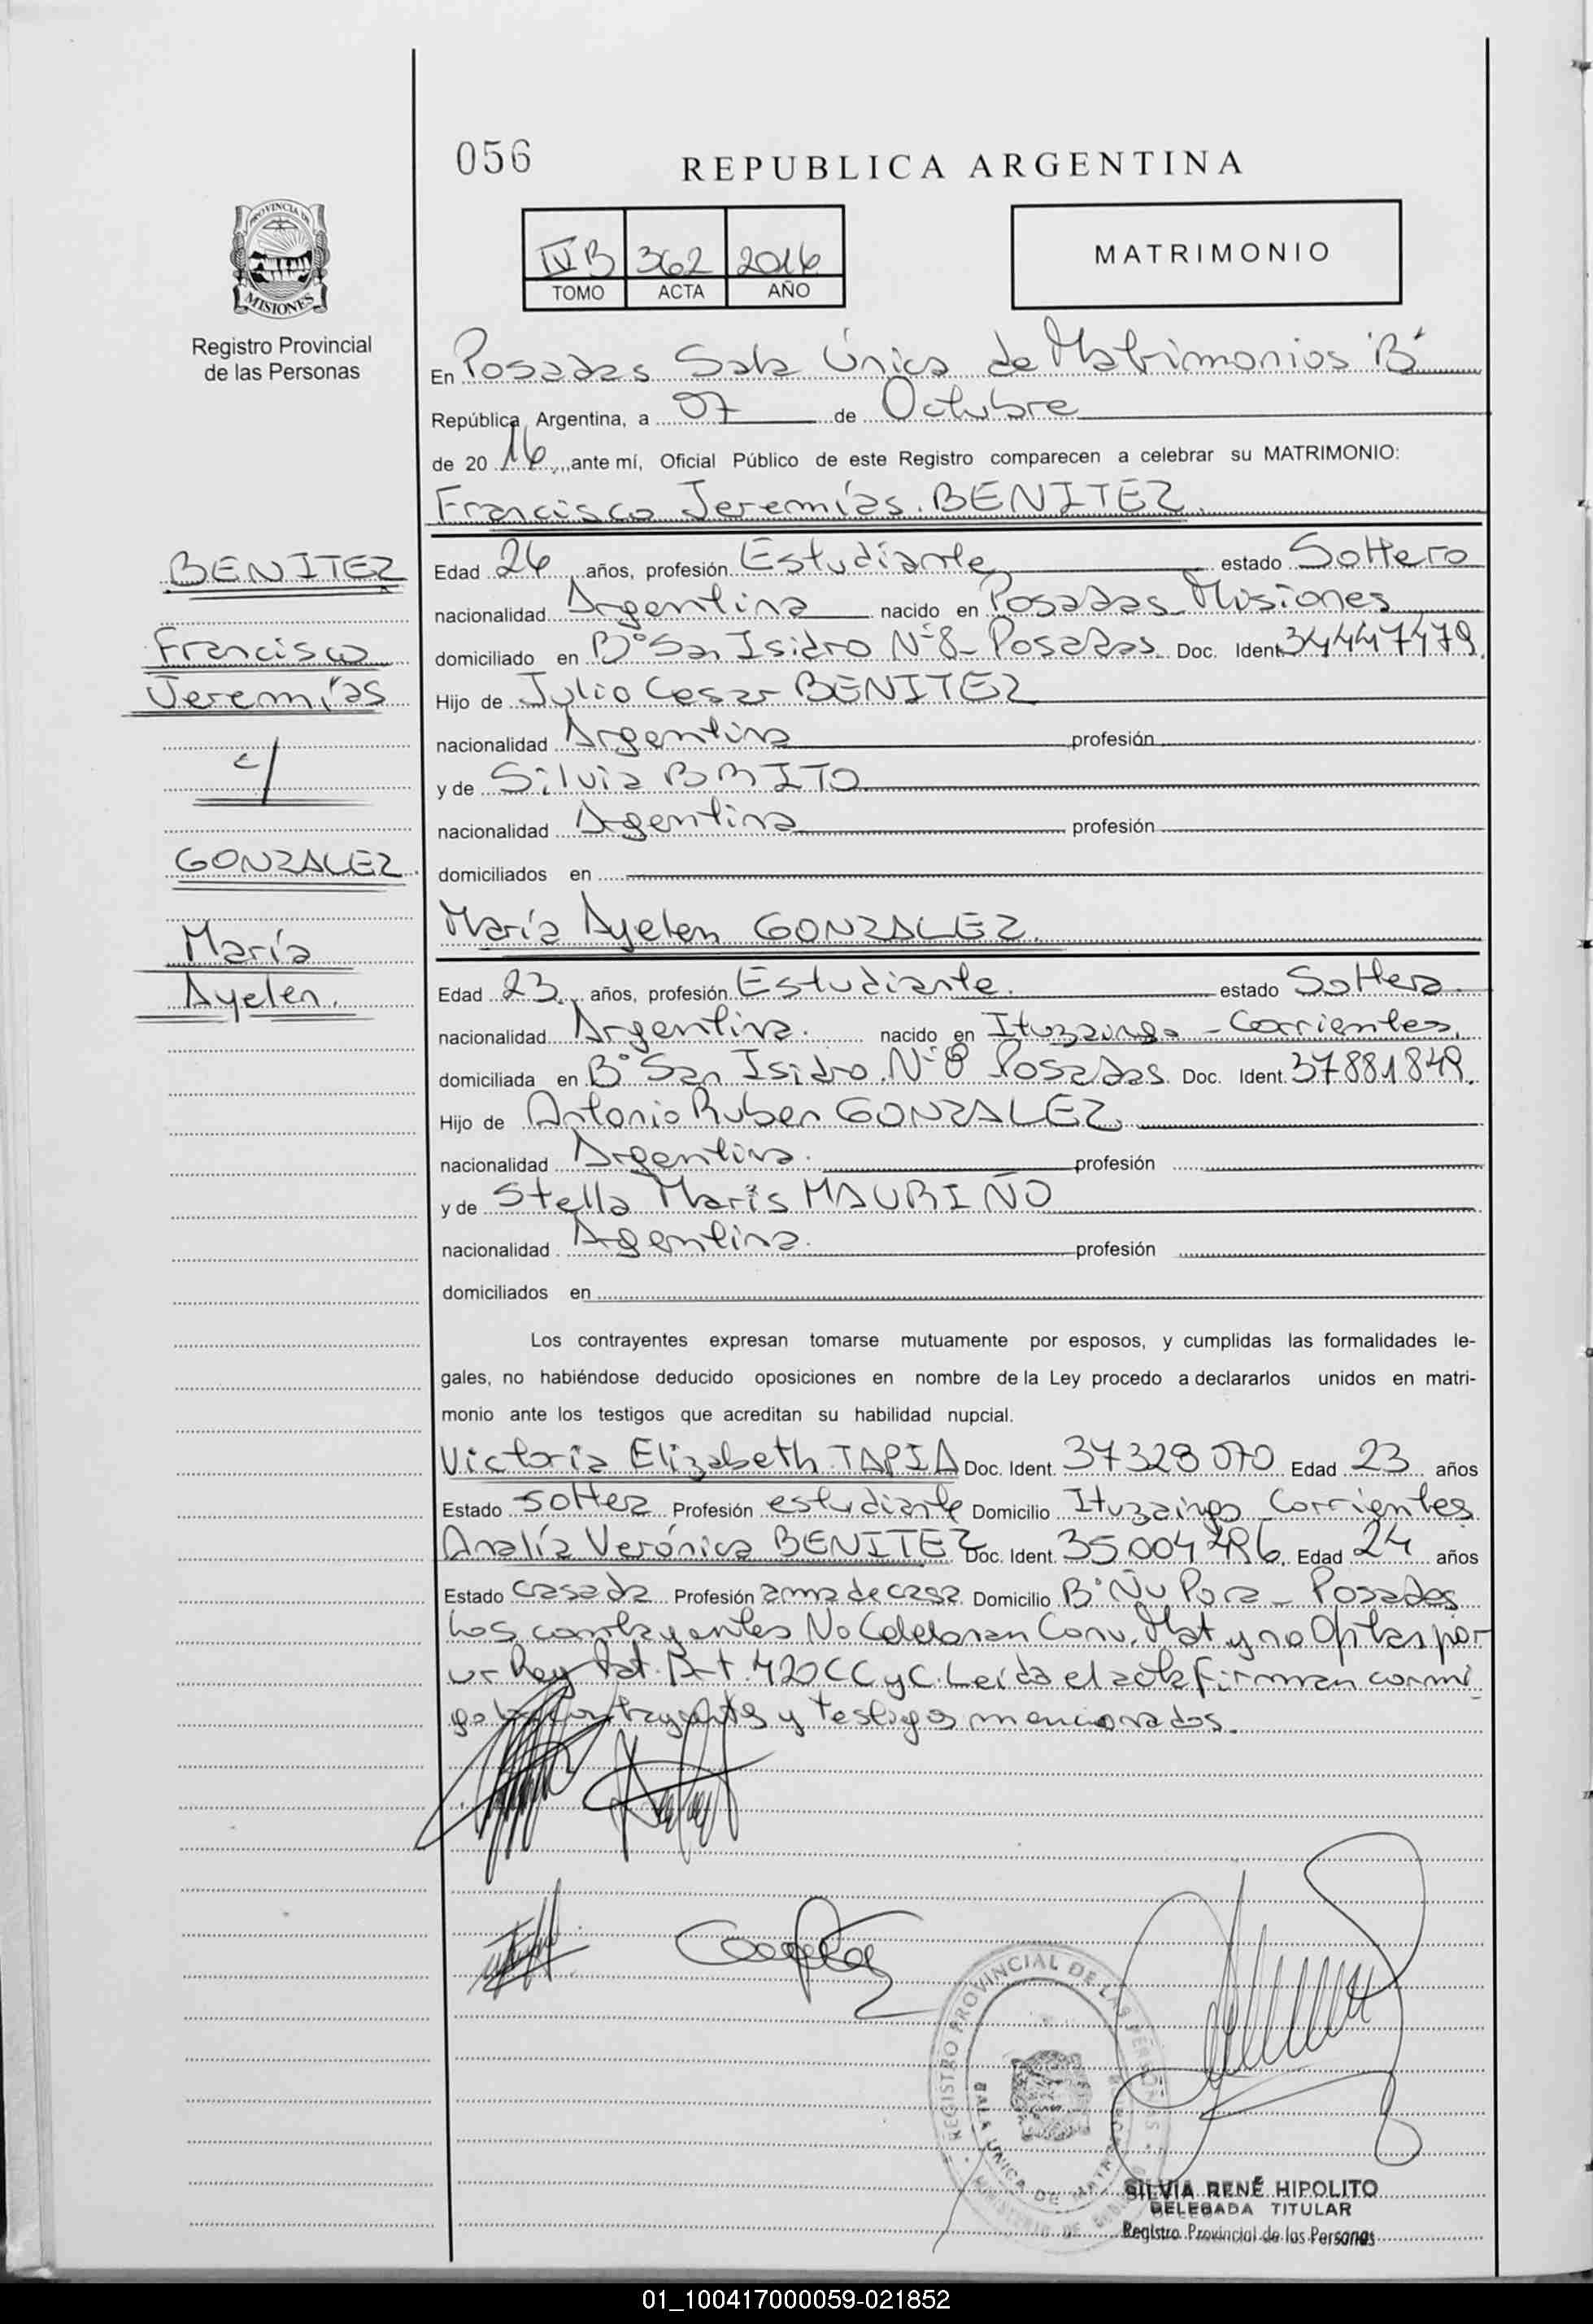 056
REPUBLICA ARGENTINA
PROVINCIA DE
MISIONES
Registro Provincial
de las Personas
IV B 362 2016
TOMO ACTA AÑO
MATRIMONIO
En Posadas Sala Única de Matrimonios "B"
República Argentina, a 07 de Octubre
de 20 16, ante mí, Oficial Público de este Registro comparecen a celebrar su MATRIMONIO:
Francisco Jeremías BENITEZ
BENITEZ
Francisco
Jeremías
c/
GONZALEZ
María
Ayelen.
Edad 26 años, profesión Estudiante estado Soltero
nacionalidad Argentina nacido en Posadas Misiones
domiciliado en B° San Isidro N°8 - Posadas Doc. Ident. 34447479
Hijo de Julio Cesar BENITEZ
nacionalidad Argentina profesión
y de Silvia BRITO
nacionalidad Argentina profesión
domiciliados en
María Ayelen GONZALEZ.
Edad 23 años, profesión Estudiante. estado Soltera.
nacionalidad Argentina. nacido en Ituzaingo - Corrientes.
domiciliada en B° San Isidro N°8 Posadas Doc. Ident. 37881849.
Hijo de Antonio Ruben GONZALEZ
nacionalidad Argentina. profesión
y de Stella Maris MAURIÑO
nacionalidad Argentina. profesión
domiciliados en
Los contrayentes expresan tomarse mutuamente por esposos, y cumplidas las formalidades le-
gales, no habiéndose deducido oposiciones en nombre de la Ley procedo a declararlos unidos en matri-
monio ante los testigos que acreditan su habilidad nupcial.
Victoria Elizabeth TAPIA Doc. Ident. 37328070 Edad 23 años
Estado soltera Profesión estudiante Domicilio Ituzaingo Corrientes
Analía Verónica BENITEZ Doc. Ident. 35004486 Edad 24 años
Estado casada Profesión ama de casa Domicilio B° Ñu Pora - Posadas
Los contrayentes No Celebran Conv. Mat y no Optan por
un Reg Pat. Art. 420 CC y C. Leída el acta firman conmi
go los contrayentes y testigos mencionados.
REGISTRO PROVINCIAL DE LAS PERSONAS
SALA UNICA DE
SILVIA RENÉ HIPOLITO
DELEGADA TITULAR
Registro Provincial de las Personas
01_100417000059-021852